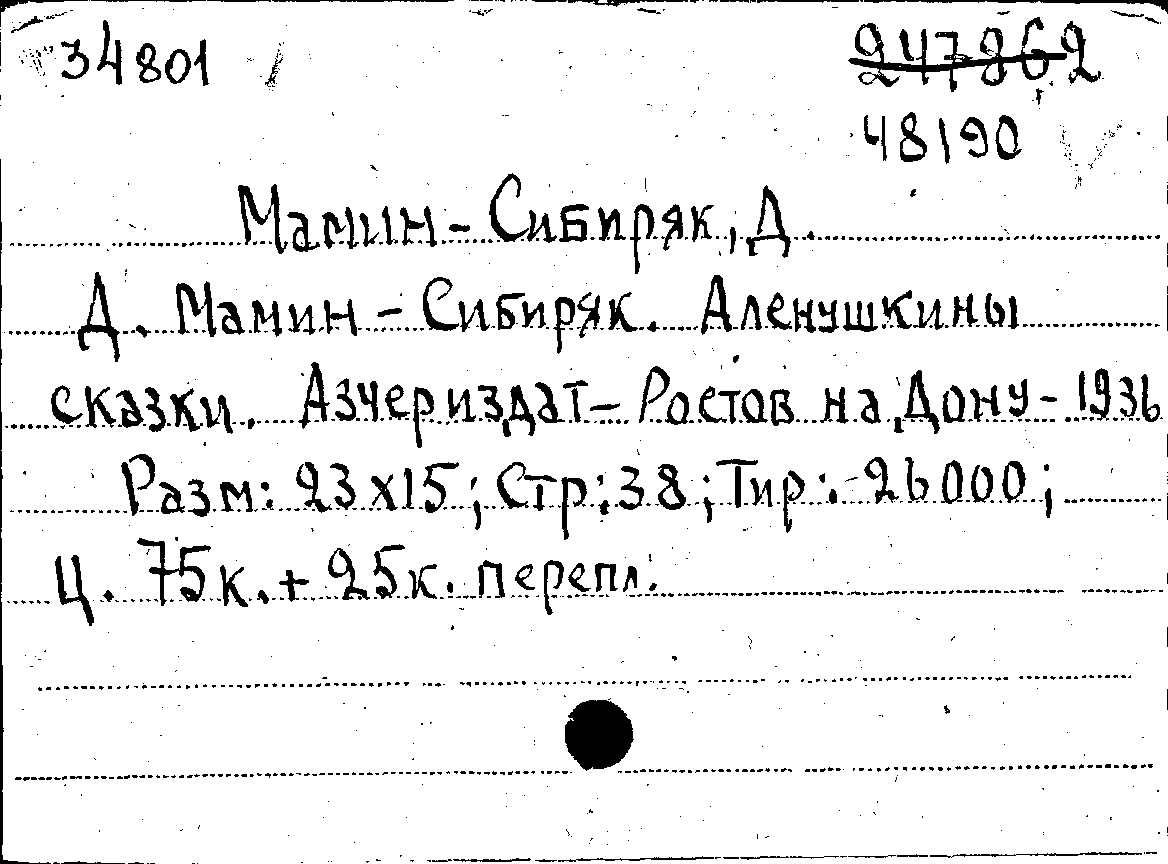 34801 247862
48190
Мамин-Сибиряк, Д.
Д. Мамин-Сибиряк. Аленушкины
сказки. Азчериздат-Ростов на Дону-1936
Разм: 23х15; Стр:38; Тир:-26000;
Ц. 75к.+25к. перепл.